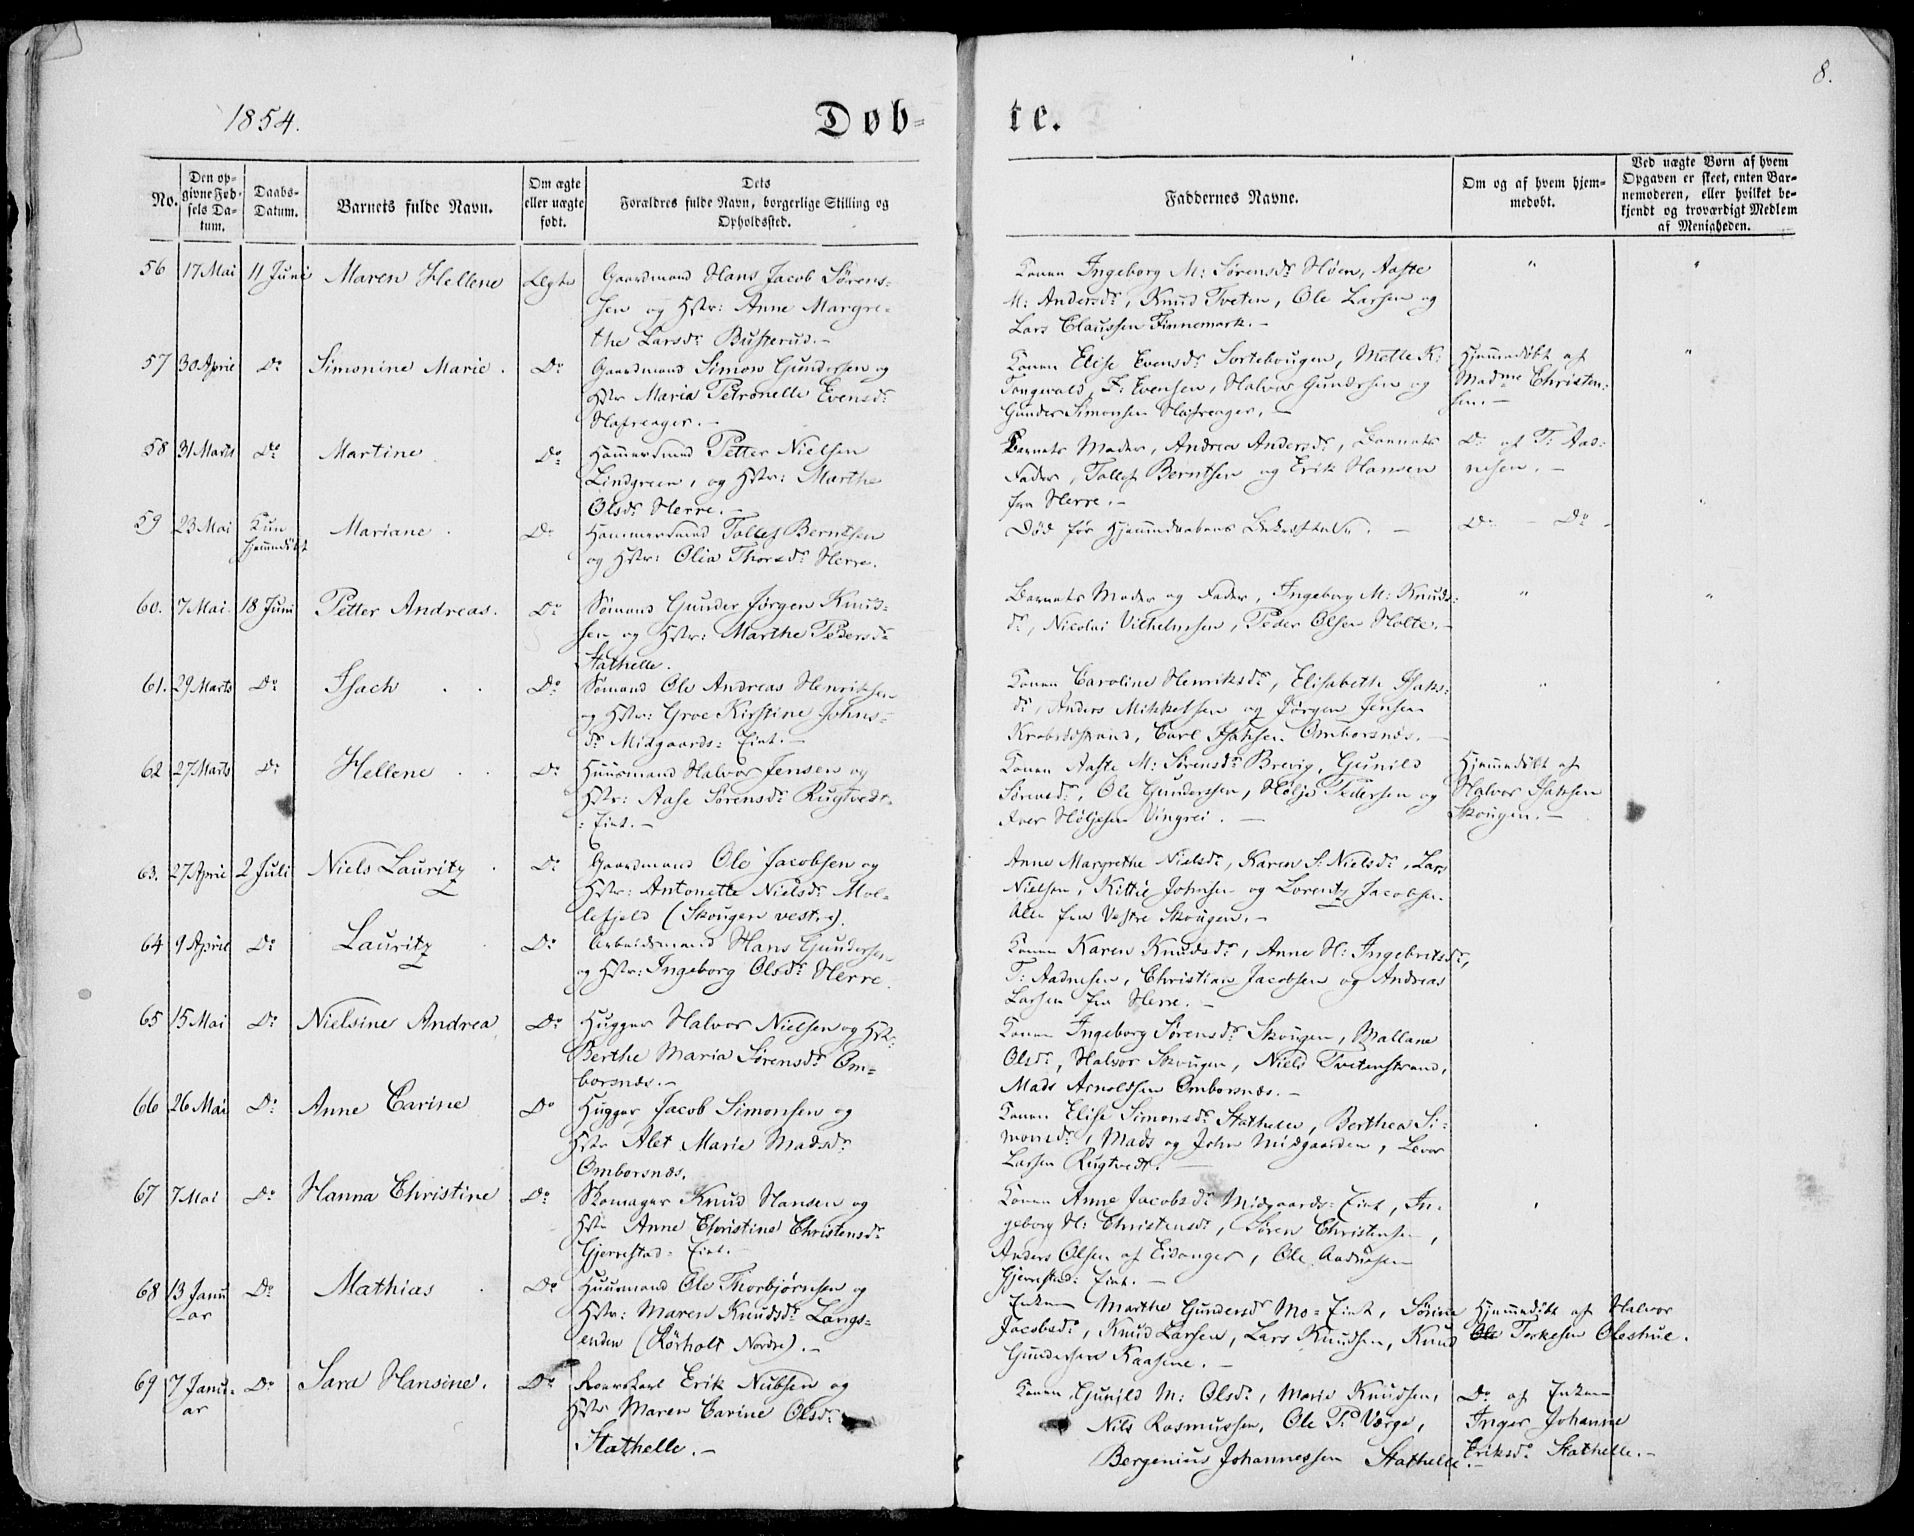 8.
1854.
Døb-
te.
No.
Den op-
givne Fød-
sels Da-
tum.
Daabs-
Datum.
Barnets fulde Navn.
Om ægte
eller uægte
født.
Dets
Forældres fulde Navn, borgerlige Stilling og
Opholdssted.
Faddernes Navne.
Om og af hvem hjem-
medøbt.
Ved uægte Børn af hvem
Opgaven er skeet, enten Bar-
nemoderen, eller hvilket be-
kjendt og troværdigt Medlem
af Menigheden.
56 17 Mai 11 Juni Maren Hellene Ægte
Gaardmand Hans Jacob Sørens-
sen og Hstr: Anne Margre-
the Larsdr Busterud.-
Konen Ingeborg M: Sørensdr Høen, Aaste
M: Andersdr, Knud Tveten, Ole Larsen og
Lars Claussen Finnemark.-
57 30 April Do Simonine Marie. Do
Gaardmand Simon Gundersen og
Hstr Maria Petronelle Evensdr
Hafsenger.-
Konen Elise Evensdr Sortebougen, Motle K:
Tangvald, F: Evensen, Halvor Gundersen og
Gunder Simonsen Hafsenger.-
Hjemmedøbt af
Madme Christen-
sen.-
58 31 Marts Do Martine Do
Hammersmed Petter Nielsen
Lindgreen, og Hstr: Marthe
Olsdr Herre.-
Barnets Moder, Andrea Andersdr, Barnets
Fader, Tollef Berntsen og Erik Hansen
fra Herre.-
Do af T: Aad-
nesen.-
59 23 Mai Kun
hjemmedøbt Mariane. Do
Hammersmed Tollef Berntsen
og Hstr: Olia Thorsdr Herre.
Død før Hjemmedaabens Bekræftelse.-
Do - Do -
60. 7 Mai. 18 Juni Petter Andreas. Do
Sømand Gunder Jørgen Knud-
sen og Hstr: Marthe Pedersdr
Stathelle.
Barnets Moder og Fader, Ingeborg M: Knuds-
dr, Nicolai Vilhelmsen, Peder Olsen Holte.-
61. 29 Marts Do Isach Do
Sømand Ole Andreas Henriksen
og Hstr: Groe Kirstine Johns-
dr Midgaards: Eint.-
Konen Caroline Henriksdr, Elisabeth Isaks-
dr, Anders Mikkelsen og Jørgen Jensen
Krabbestrand, Carl Isaksen Omborsnæs.-
62 27 Marts Do Hellene Do
Huusmand Halvor Jensen og
Hstr: Aase Sørensdr Rugtvedt-
: Eint.-
Konen Aaste M: Sørensdr Brevig, Gunild
Sørensdr, Ole Gundersen, Hølje Pedersen og
Iver Høljesen Vingrei.-
Hjemmedøbt af
Halvor Isaksen
Skougen.-
63. 27 April 2 Juli Niels Lauritz Do
Gaardmand Ole Jacobsen og
Hstr: Antonette Nielsdr Mol-
lefjeld (Skougen vestre).
Anne Margrethe Nielsdr, Karen S: Nielsdr, Lars
Nielsen, Kittil Johnsen og Lorentz Jacobsen
Alle fra Vestre Skougen.-
64 9 April Do Lauritz Do
Arbeidsmand Hans Gundersen
og Hstr: Ingeborg Olsdr Herre.
Konen Karen Knudsdr, Anne H: Ingebretsdr,
T: Aadnesen, Christian Jacobsen og Andreas
Larsen fra Herre.-
65 15 Mai Do Nielsine Andrea Do
Hugger Halvor Nielsen og Hstr:
Berthe Maria Sørensdr Om-
borsnæs.-
Konen Ingeborg Sørensdr Skougen, Mallane
Olsdr, Halvor Skougen, Niels Tvetenstrand,
Mads Arnoldsen Omborsnæs.-
66 26 Mai Do Anne Carine Do
Hugger Jacob Simonsen og
Hstr Alet Marie Madsdr
Omborsnæs.
Konen Elise Simonsdr Stathelle, Berthea Si-
monsdr, Mads og John Midgaarden, Levor
Larsen Rugtvedt.-
67 7 Mai Do Hanna Christine Do
Skomager Knud Hansen og
Hstr Anne Christine Christensdr
Gjerrestad: Eint.-
Konen Anne Jacobsdr Midgaards: Eint, In-
geborg H: Christensdr, Søren Christensen,
Anders Olsen af Eidanger, Ole Aadnesen
Gjerrestad: Eint.-
68 13 Janu-
ar Do Mathias Do
Huusmand Ole Thorbjørnsen og
Hstr: Maren Knudsdr Langs-
enden (Rørholt Nordre).-
Enken Marthe Gundersdr Mo-Eint, Sørine
Jacobsdr, Knud Larsen, Lars Knudsen, Knud
Gundersen Kaasene.-
Hjemmedøbt af Halvor
Ole Terkelsen Oleshue.
69 7 Janu-
ar Do Sara Hansine. Do
Roerskarl Erik Nubsen og
Hstr Maren Carine Olsdr
Stathelle.-
Konen Gunild M: Olsdr, Marie Knudsen,
Nils Rasmussen, Ole P: Værge,
Bergenius Johannessen Stathelle.-
Do af Enken
Inger Johanne
Eriksdr Stathelle.-